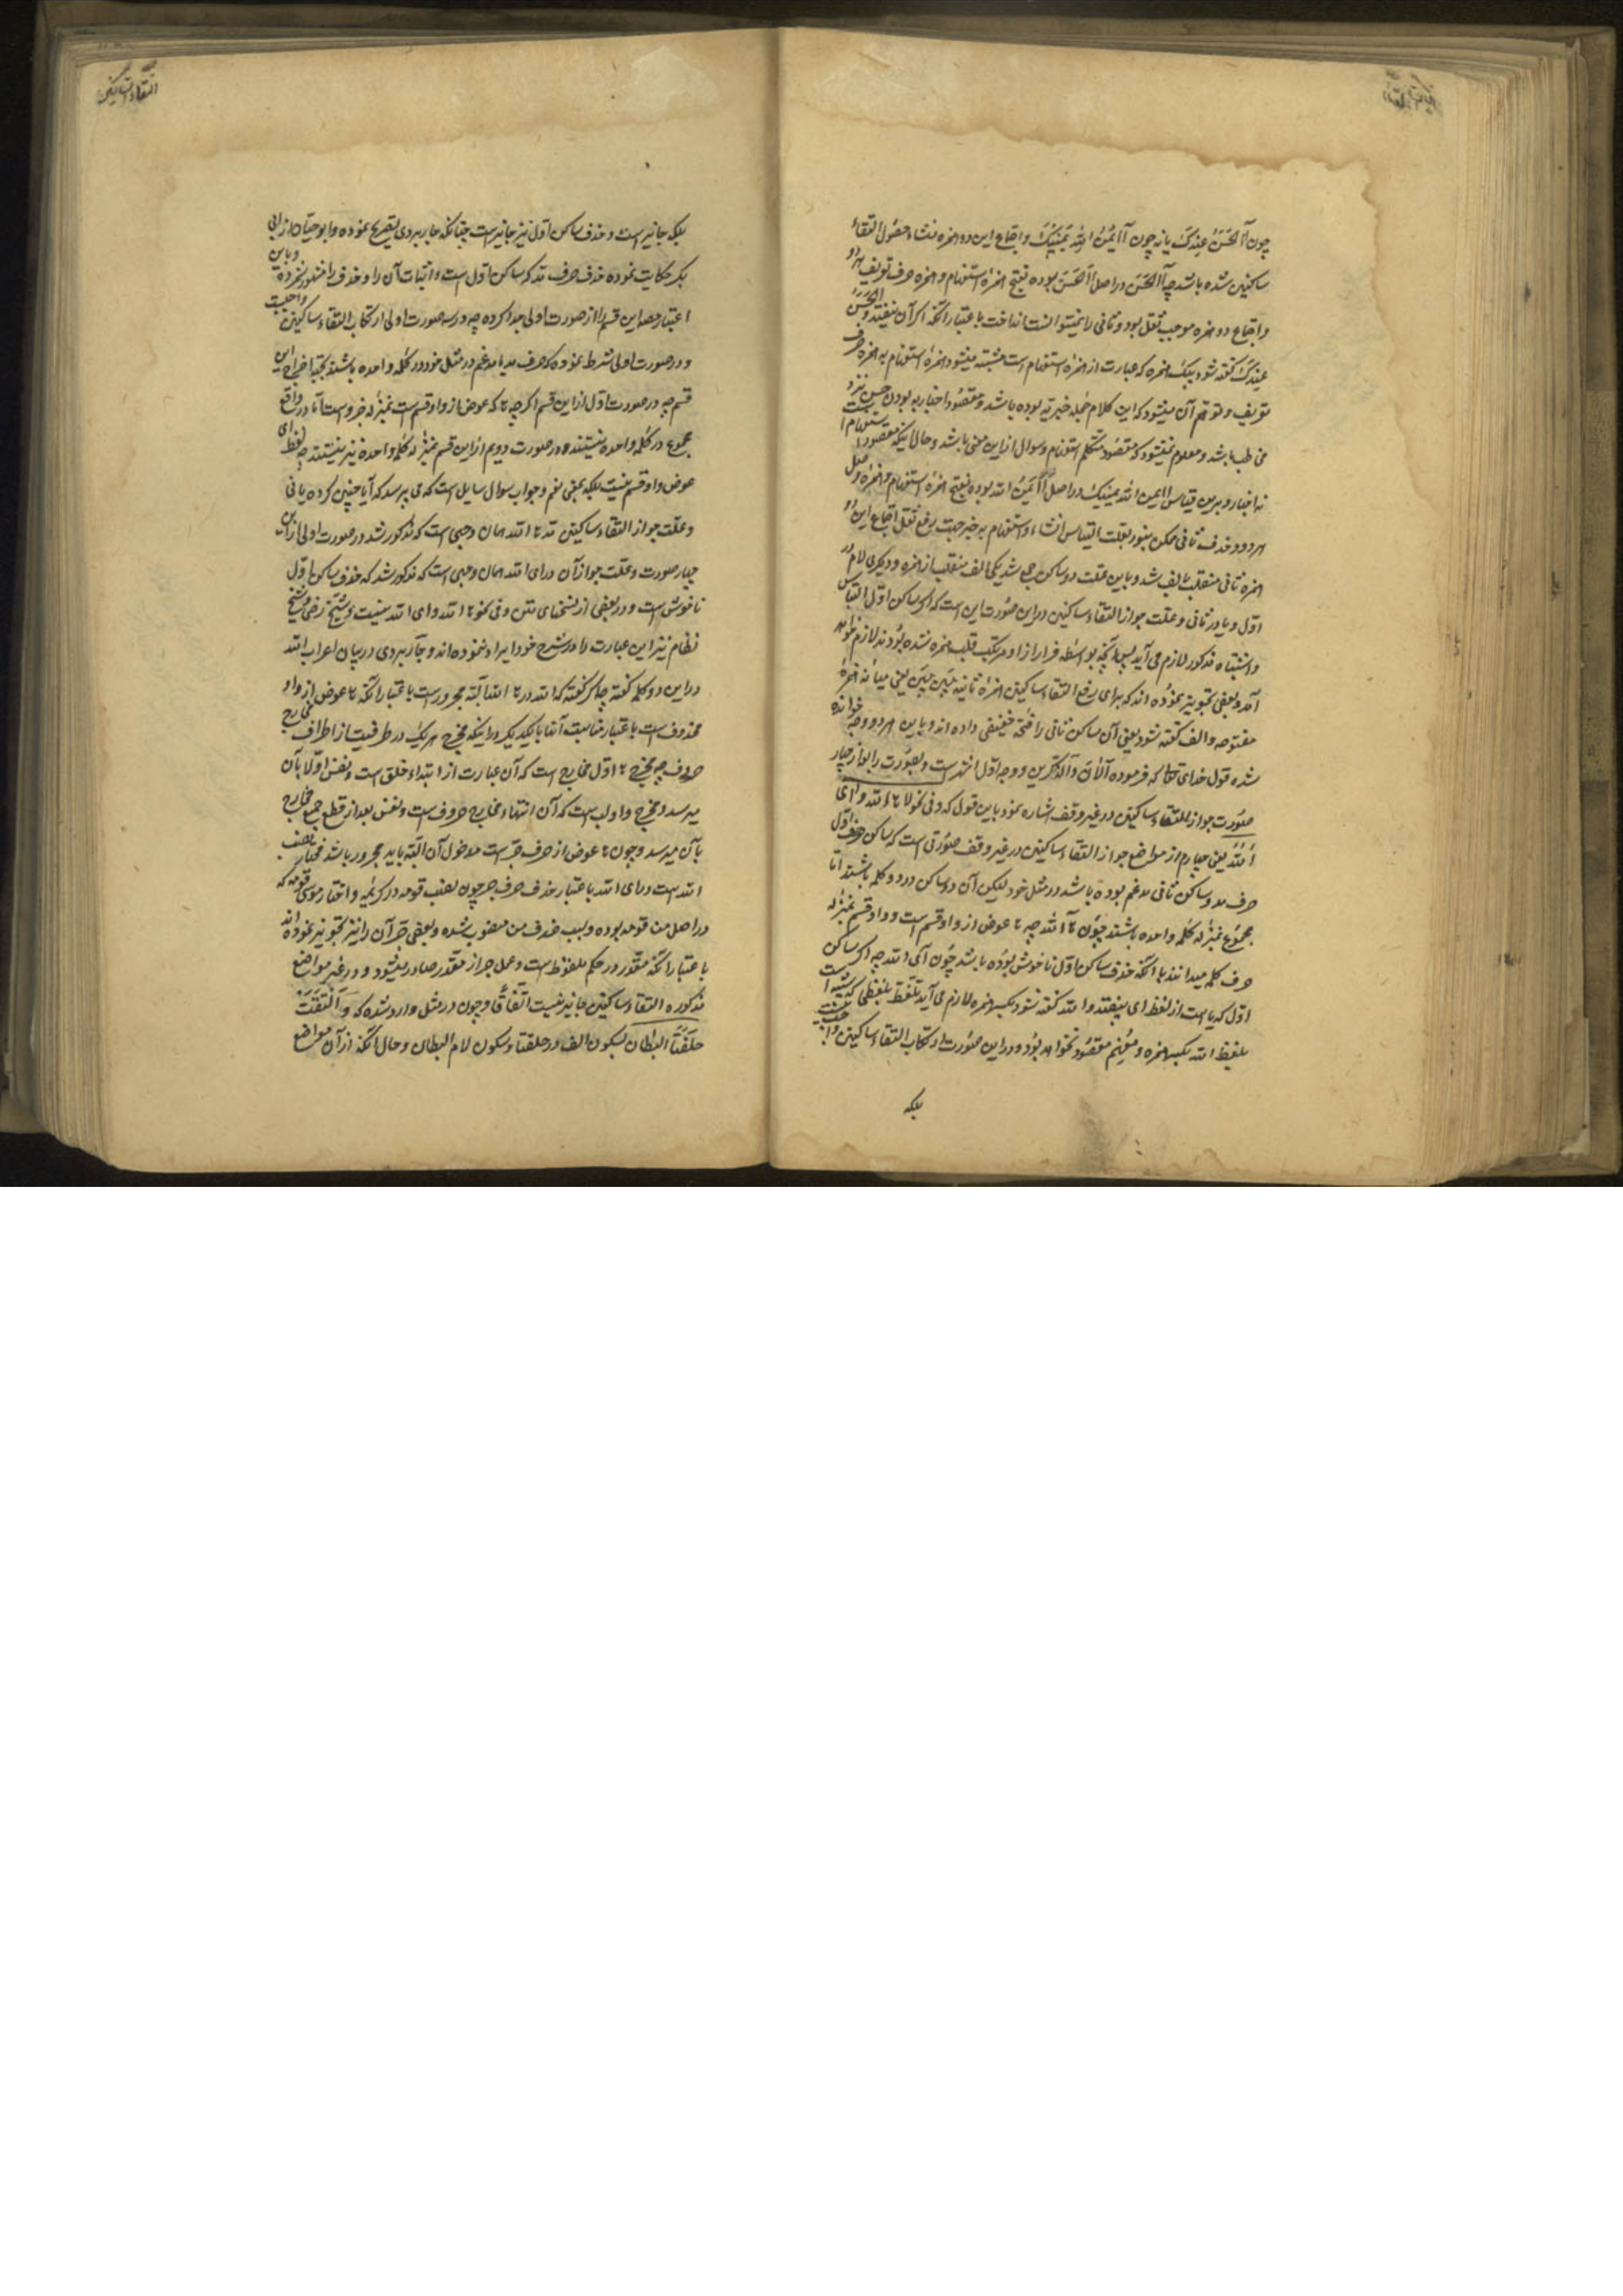 التقاء الساکنین
چون آالحَسَنُ عِندَکَ یا نه چون آایمُنُ اللّٰه یَمینُکَ و اجتماع این دو همزه منشاء حصُول التقاءِ
ساکنین شده باشد چه آالحَسَن در اصل أاَلحَسَن بوده بفتح همزهٔ استفهام و همزه حرف تعریف هر دو
و اجتماع دو همزه موجب ثقل بود و ثانی را نمیتوانست انداخت باعتبار آنکه اگر آن بیفتد و الحَسَنُ
عِندَکَ گفته شود بیک همزه که عبارت از همزهٔ استفهام است مشتبه میشود همزهٔ استفهام به همزه حرف
تعریف و توهّم آن میشود که این کلام جُمله خبریّه بوده باشد و مقصُود اخبار به بودن حسن نزد
مخاطب باشد و معلوم نمیشود که مقصُود متکلّم استفهام و سوال از این معنی باشد و حال اینکه مقصود استفهام است
نه اخبار و برین قیاس أایمن اللّٰه یمینک در اصل أأیمُنُ اللّٰه بوده بفتح همزهٔ استفهام و همزهٔ وصل
هر دو و حذف ثانی ممکن نبود بعلت التباس انشاء و استفهام به خبر جهت رفع ثقل اجتماع این دو
همزه ثانی منقلب بالف شد و باین علّت دو ساکن جمع شد یکی الف منقلب از همزه و دیگری لام در
اوّل و یا در ثانی و علّت جواز التقاء ساکنین در این صُورت این است که اگر ساکن اوّل التباس
و اشتباه مذکور لازم می آید پس آنچه بواسطه فرار از او مرتکب قلب همزه شده بُودند لازم خواهد
آمد و بعضی تجویز نموُده اند که برای رفع التقاء ساکنین همزهٔ ثانیه بَین بَین یعنی میانه همزهٔ
مفتوحه و الف گفته شود یعنی آن ساکن ثانی را فتحه خفیفی داده اند و باین هر دو وجه خوانده
شده قول خدای تعالی که فرموده آلآن و آلذّکَرین و وجه اوّل اشهر است و بصُورت رابع از چهار
صُورت جواز التقاء ساکنین در غیر وقف اشاره نمود باین قول که و فی نحو لاها اللّٰه و ای
اَللّٰه یعنی چهارم از مواضع جواز التقاء ساکنین در غیر وقف صُورتی است که ساکن اوّل
حرف مد و ساکن ثانی مدغم بوده باشد در مثل خود لیکن آن دو ساکن در دو کلمه باشند امّا
مجموُع بمنزله کلمه واحده باشند چُون ها اللّٰه چه ها عوض از واو قسم است و واو قسم بمنزله
حرف کلمه میدانند یا آنکه حذف ساکن اوّل ناخوش بوده باشد چُون ای اللّٰه چه اگر ساکن
اوّل که یا است از لفظ ای بیفتد و اللّٰه گفته شود بکسر همزه لازم می آید تلفّظ بلفظی که شبیه است
بلفظ اللّٰه بکسر همزه و مُفهِم مقصُود نخواهد بُود و در این صُورت ارتکاب التقاء ساکنین واجب نیست
بلکه
التقاء الساکنین
بلکه جائز است و حذف ساکن اوّل نیز جائز است چنانکه جاربردی تصریح نموده و ابو حیّان از ابی
بکر حکایت نموده حذف حرف مد که ساکن اوّل است و اثبات آن را و حذف را اشهر شمرده و باین
اعتبار مصر این قسم را از صورت اولی جدا کرده چه در سه صورت اولی ارتکاب التقاء ساکنین واجبست
و در صورت اولی شرط نموده که حرف مد با مدغم در مثل خود در کلمه واحده باشند بجهة اخراج این
قسم چه در صورت اوّل از این قسم اگر چه ها که عوض از واو قسم است بمنزله جزو است امّا در واقع
مجموع در کلمه واحده نیستند و در صورت دویم از این قسم بمنزله کلمه واحده نیز نیستند چه لفظ ای
عوض واو قسم نیست بلکه بمعنی نعم و جواب سوال سایل است که می پرسد که آیا چنین کرده یا نی
و علّت جواز التقاء ساکنین در ها اللّٰه همان وجهی است که مذکور شد در صورت اولی از این
چهار صورت و علّت جواز آن در ای اللّٰه همان وجهی است که مذکور شد که حذف ساکن اوّل
ناخوش است و در بعضی از نسخهای متن و فی نحو ها اللّٰه و ای اللّٰه نیست و شیخ رضی و شیخ
نظام نیز این عبارت را در شرح خود ایراد ننموده اند و جاربردی در بیان اعراب اللّٰه
در این دو کلمه گفته چه گفته که اللّٰه در ها اللّٰه البته مجرور است باعتبار آنکه ها عوض از واو
محذوف است باعتبار مناسبت آنها با یکدیگر در اینکه مخرج هر یک در طرفیست از اطراف مخارج
حروف چه مخرج ها اوّل مخارج است که آن عبارت از ابتداء حلق است و نفس اوّلا بآن
میرسد و مخرج واو لب است که آن انتهاء مخارج حروف است و نفس بعد از قطع جمیع مخارج
بآن میرسد و چون ها عوض از حرف جرّ است مدخول آن البتّه باید مجرور باشد مختار نصب
اللّٰه است در ای اللّٰه باعتبار حذف حرف جر چون نصب قومه در کریمه و اختار موسی قومه که
در اصل من قومه بوده و بسبب حذف من منصوب شده و بعضی جرّ آن را نیز تجویز نموده اند
باعتبار آنکه مقدّر در حکم ملفوظ است و عمل جر از مقدّر صادر میشود و در غیر مواضع
مذکوره التقاء ساکنین جایز نیست اتّفاقًا و چون در مثل وارد شده که وَ الْتَقَتْ
حلَقَتَا البِطان بسکون الف در حلقتا و سکون لام البطان و حال آنکه از آن مواضع